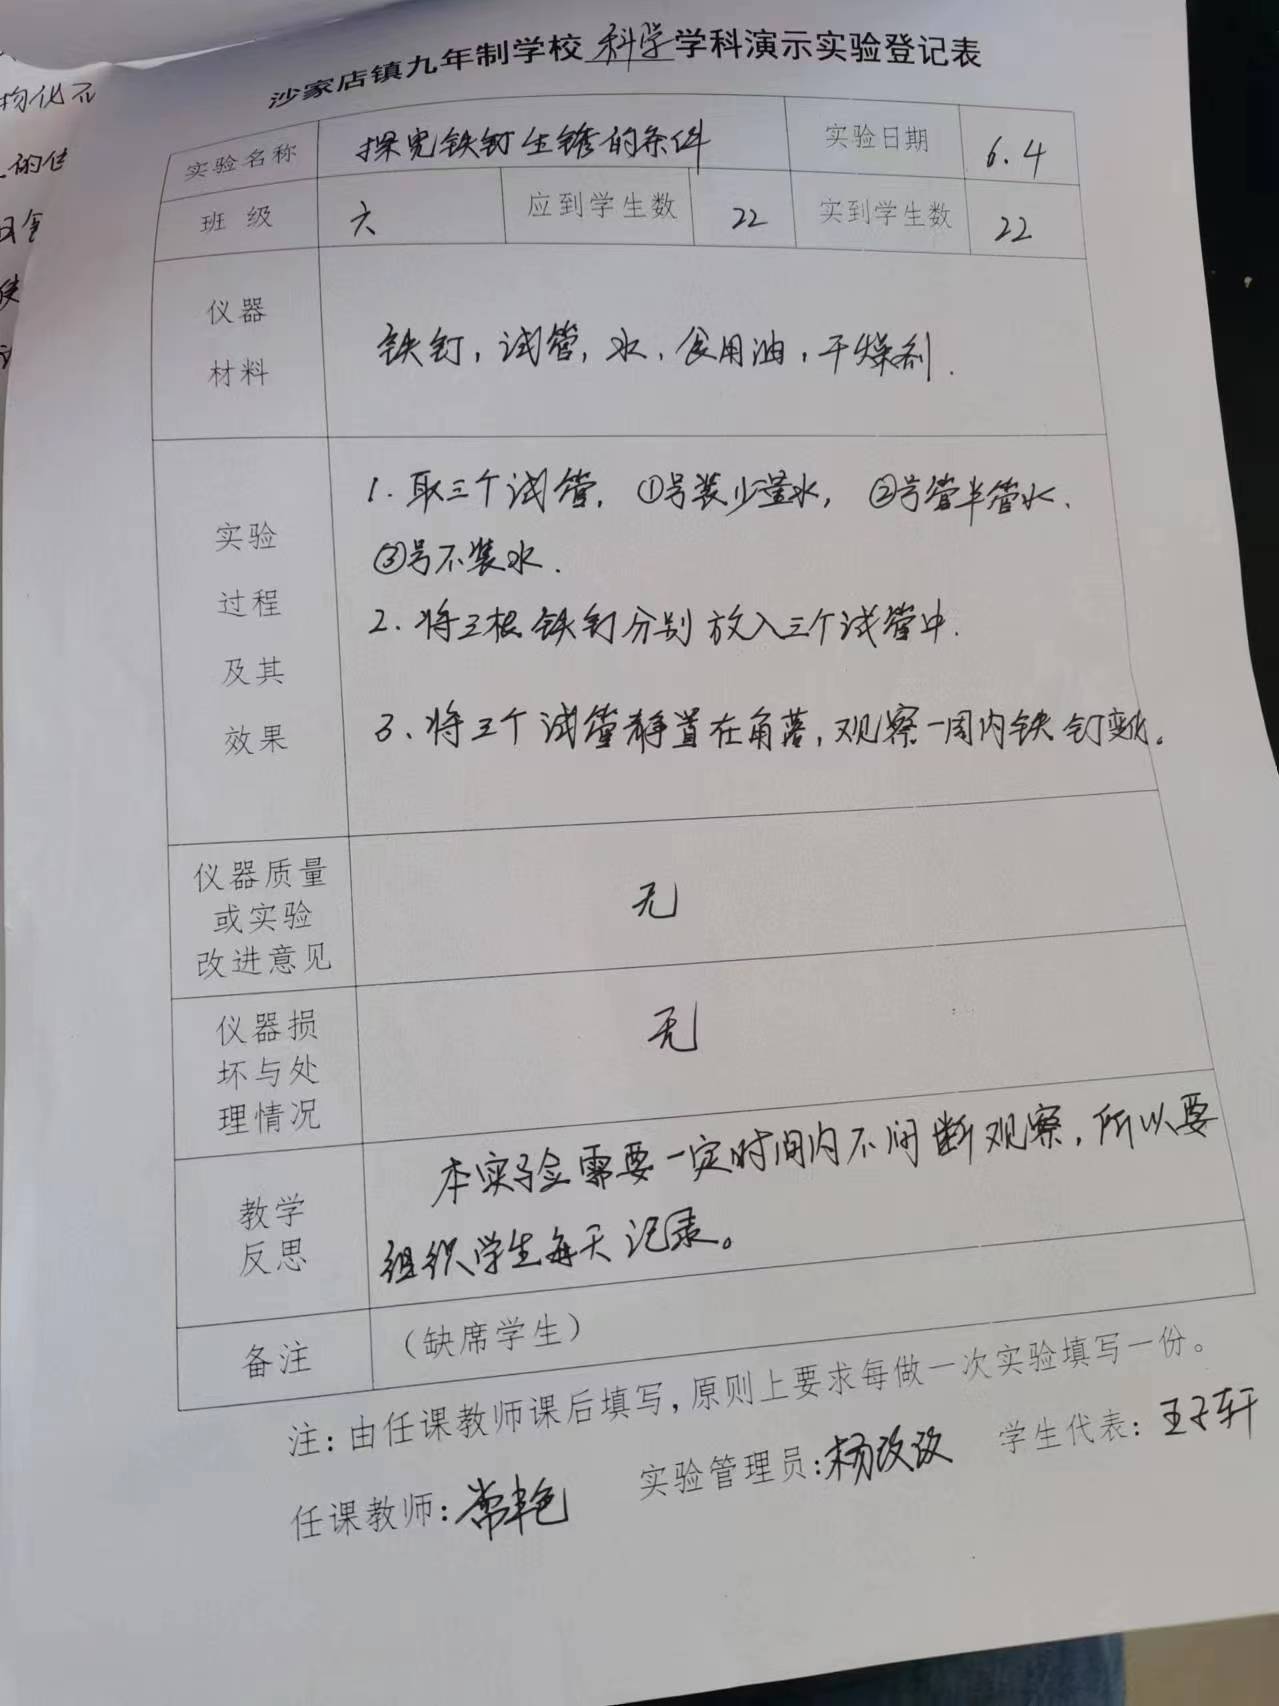 物化不
的住
沙家店镇九年制学校科学学科演示实验登记表
实验名称 探究铁钉生锈的条件 实验日期 6.4
班 级 六 应到学生数 22 实到学生数 22
仪器
材料
铁钉,试管,水,食用油,干燥剂.
实验
过程
及其
效果
1.取三个试管,①号装少量水,②号管半管水.
③号不装水.
2.将三根铁钉分别放入三个试管中.
3、将三个试管静置在角落,观察一周内铁钉变化。
仪器质量
或实验
改进意见
无
仪器损
坏与处
理情况
无
教学
反思
本实验需要一定时间内不间断观察,所以要
组织学生每天记录。
备注 (缺席学生)
注:由任课教师课后填写,原则上要求每做一次实验填写一份。
任课教师:常艳 实验管理员:杨改改 学生代表:王子轩